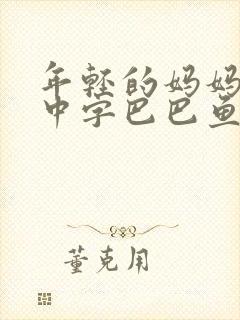 年轻的妈妈
中字巴巴鱼
董克用